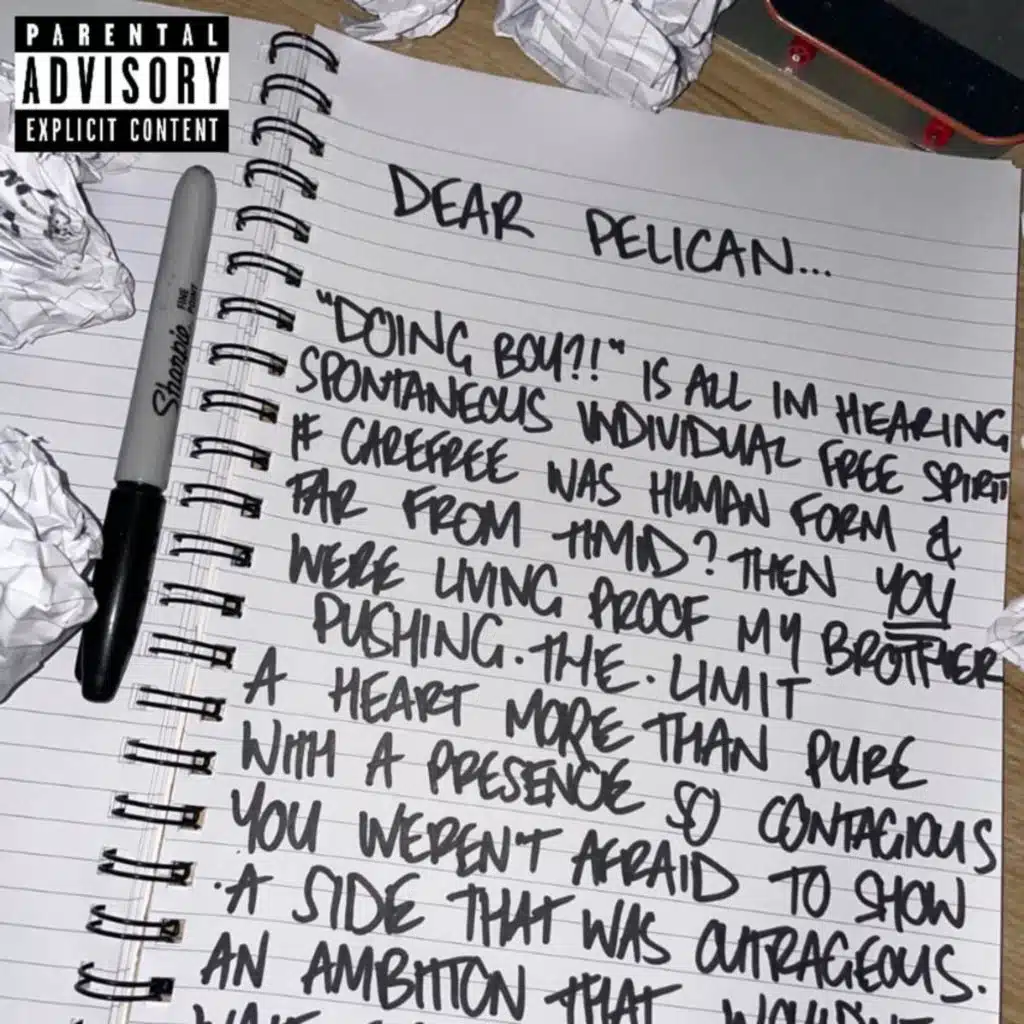 PARENTAL
ADVISORY
EXPLICIT CONTENT
Sharpie
FINE
POINT
DEAR PELICAN...
"DOING BOY?!" IS ALL IM HEARING
SPONTANEOUS INDIVIDUAL FREE SPIRIT
IF CAREFREE WAS HUMAN FORM &
FAR FROM TIMID? THEN YOU
WERE LIVING PROOF MY BROTHER
PUSHING.THE.LIMIT
A HEART MORE THAN PURE
WITH A PRESENCE SO CONTAGIOUS
YOU WEREN'T AFRAID TO SHOW
.A SIDE THAT WAS OUTRAGEOUS.
AN AMBITION THAT WOULDN'T